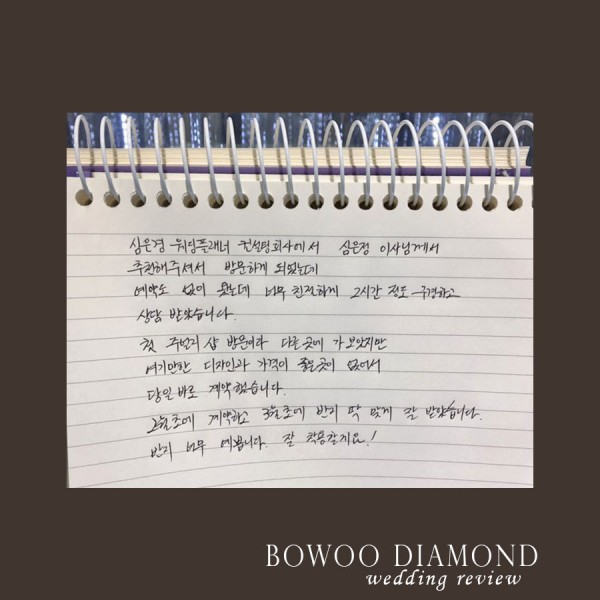 심은경 웨딩플래너 컨설팅회사에서 심은정 이사님께서
추천해주셔서 방문하게 되었는데
예약도 없이 왔는데 너무 친절하게 2시간 정도 구경하고
상담 받았습니다.
첫 주얼리 샵 방문이라 다른곳에 가보았지만
여기만한 디자인과 가격이 좋은곳이 없어서
당일 바로 계약했습니다.
2월초에 계약하고 3월초에 반지 딱 맞게 잘 받았습니다.
반지 너무 예쁩니다. 잘 착용할게요!
BOWOO DIAMOND
wedding review